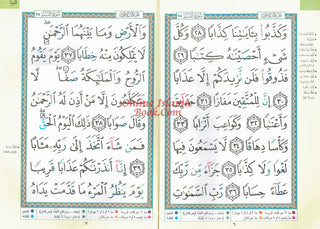 وَكَذَّبُوا۟ بِـَٔايَـٰتِنَا كِذَّابًا ٢٨ وَكُلَّ
شَىْءٍ أَحْصَيْنَـٰهُ كِتَـٰبًا ٢٩
فَذُوقُوا۟ فَلَن نَّزِيدَكُمْ إِلَّا عَذَابًا
٣٠ إِنَّ لِلْمُتَّقِينَ مَفَازًا ٣١ حَدَآئِقَ
وَأَعْنَـٰبًا ٣٢ وَكَوَاعِبَ أَتْرَابًا ٣٣
وَكَأْسًا دِهَاقًا ٣٤ لَّا يَسْمَعُونَ فِيهَا
لَغْوًا وَلَا كِذَّٰبًا ٣٥ جَزَآءً مِّن رَّبِّكَ
عَطَآءً حِسَابًا ٣٦ رَّبِّ ٱلسَّمَـٰوَٰتِ
وَٱلْأَرْضِ وَمَا بَيْنَهُمَا ٱلرَّحْمَـٰنِ
لَا يَمْلِكُونَ مِنْهُ خِطَابًا ٣٧ يَوْمَ يَقُومُ
ٱلرُّوحُ وَٱلْمَلَـٰٓئِكَةُ صَفًّا لَّا
يَتَكَلَّمُونَ إِلَّا مَنْ أَذِنَ لَهُ ٱلرَّحْمَـٰنُ
وَقَالَ صَوَابًا ٣٨ ذَٰلِكَ ٱلْيَوْمُ ٱلْحَقُّ
فَمَن شَآءَ ٱتَّخَذَ إِلَىٰ رَبِّهِۦ مَـَٔابًا
٣٩ إِنَّآ أَنذَرْنَـٰكُمْ عَذَابًا قَرِيبًا
يَوْمَ يَنظُرُ ٱلْمَرْءُ مَا قَدَّمَتْ يَدَاهُ
Online Islamic
Book.Com